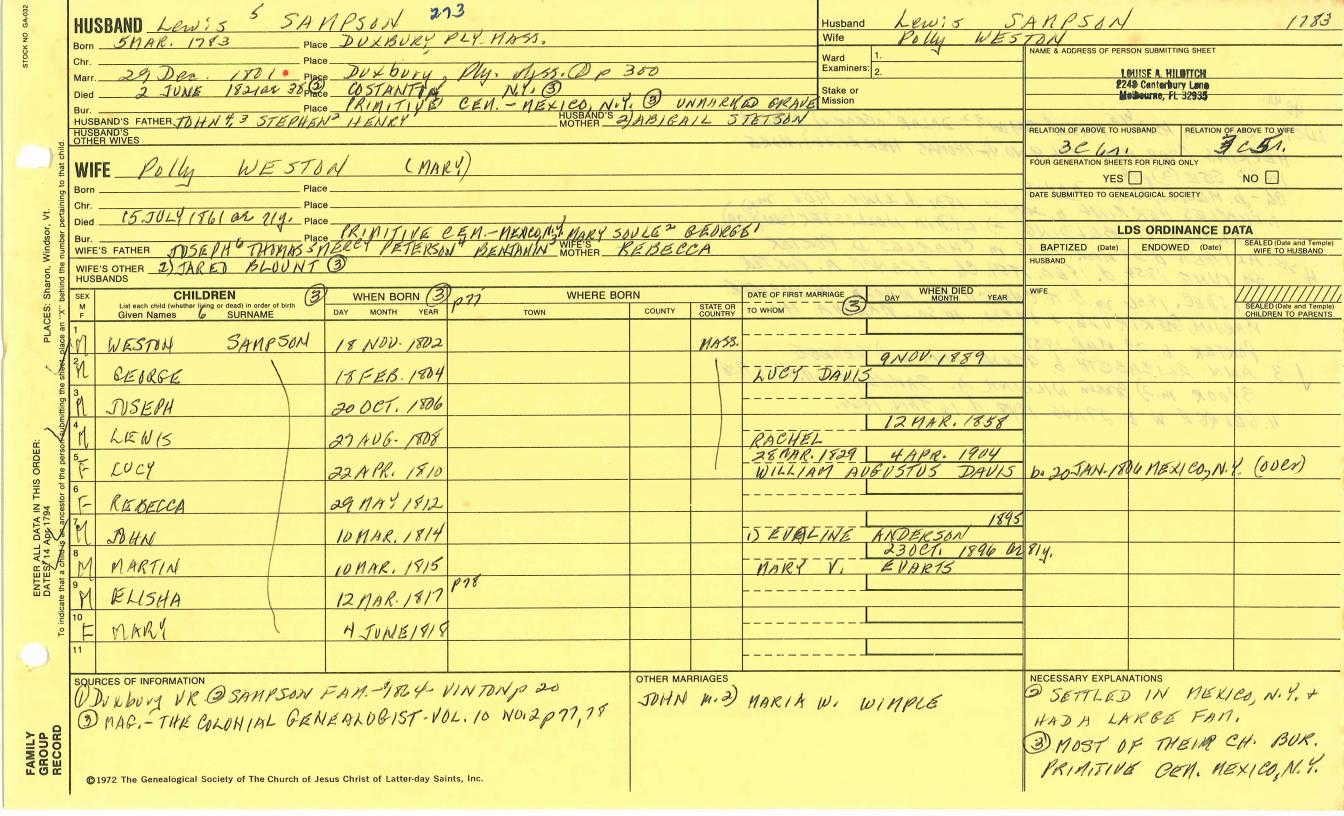 STOCK NO. GA-032
HUSBAND Lewis 5 SAMPSON 273
Born 5 MAR. 1783 Place DUXBURY PLY. MASS.
Chr. Place
Marr. 29 Dec. 1801 Place Duxbury, Ply. Mass. ① p 300
Died 2 JUNE 1821 or 30 ③ Place COSTANTIA N.Y. ③
Bur. Place PRIMITIVE CEM. - MEXICO, N.Y. ③ UNMARKED GRAVE
HUSBAND'S FATHER JOHN 4, 3 STEPHEN 2 HENRY 1 HUSBAND'S MOTHER 2) ABIGAIL STETSON
HUSBAND'S OTHER WIVES
WIFE Polly WESTON (MARY)
Born Place
Chr. Place
Died 15 JULY 1861 or 71y. Place
Bur. Place PRIMITIVE CEM. - MEXICO, N.Y. MARY SOULE 2 GEORGE 1
WIFE'S FATHER JOSEPH 6 THOMAS 5 MERCY PETERSON 4 BENJAMIN 3 WIFE'S MOTHER REBECCA
WIFE'S OTHER HUSBANDS 2) JARED BLOUNT ③
Husband Lewis SAMPSON 1783
Wife Polly WESTON
Ward Examiners: 1.
2.
Stake or Mission
NAME & ADDRESS OF PERSON SUBMITTING SHEET
LOUISE A. HILDITCH
2249 Canterbury Lane
Melbourne, FL 32935
RELATION OF ABOVE TO HUSBAND RELATION OF ABOVE TO WIFE
3C 6r.
FOUR GENERATION SHEETS FOR FILING ONLY
YES NO
DATE SUBMITTED TO GENEALOGICAL SOCIETY
LDS ORDINANCE DATA
BAPTIZED (Date) ENDOWED (Date) SEALED (Date and Temple) WIFE TO HUSBAND
HUSBAND
WIFE
SEALED (Date and Temple) CHILDREN TO PARENTS
SEX M F CHILDREN ③ WHEN BORN ③ p77 WHERE BORN DATE OF FIRST MARRIAGE WHEN DIED
List each child (whether living or dead) in order of birth
Given Names 6 SURNAME DAY MONTH YEAR TOWN COUNTY STATE OR COUNTRY TO WHOM ③ DAY MONTH YEAR
1 M WESTON SAMPSON 18 NOV. 1802 MASS.
2 M GEORGE 18 FEB. 1804 LUCY DAVIS 9 NOV. 1889
3 M JOSEPH 20 OCT. 1806
4 M LEWIS 27 AUG. 1808 RACHEL 12 MAR. 1858
5 F LUCY 22 APR. 1810 28 MAR. 1829 4 APR. 1904
WILLIAM AUGUSTUS DAVIS b. 20 JAN. 1806 MEXICO, N.Y. (over)
6 F REBECCA 29 MAY 1812
7 M JOHN 10 MAR. 1814 1) EVALINE ANDERSON 1895
8 M MARTIN 10 MAR. 1815 MARY V. EVARTS 23 OCT. 1896 or 81y.
9 M ELISHA 12 MAR. 1817 p78
10 F MARY 4 JUNE 1818
11
SOURCES OF INFORMATION
① Duxbury VR ② SAMPSON FAM. - 1864 - VINTON p 20
③ MAG. - THE COLONIAL GENEALOGIST - VOL. 10 NO. 2 p 77, 78
OTHER MARRIAGES
JOHN m. 2) MARIA W. WIMPLE
NECESSARY EXPLANATIONS
② SETTLED IN MEXICO, N.Y. +
HAD A LARGE FAM.
③ MOST OF THEIR CH. BUR.
PRIMITIVE CEM. MEXICO, N.Y.
©1972 The Genealogical Society of The Church of Jesus Christ of Latter-day Saints, Inc.
FAMILY GROUP RECORD
ENTER ALL DATA IN THIS ORDER:
DATES: 14 Apr 1794
PLACES: Sharon, Windsor, Vt.
To indicate that a child is an ancestor of the person submitting the sheet, place an "X" behind the number pertaining to that child.